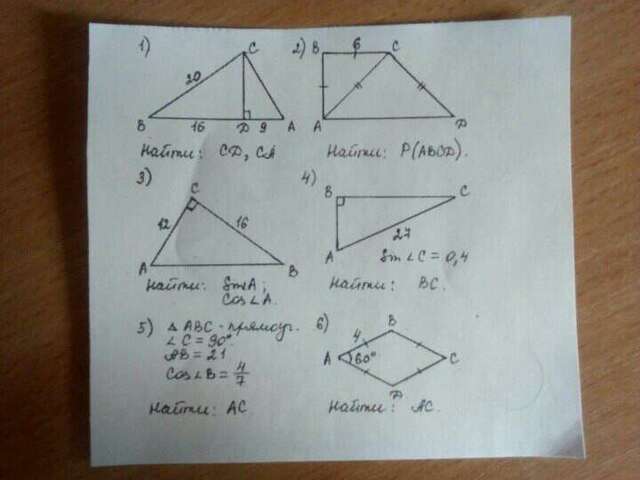 1)
C
20
B 16 D 9 A
Найти: CD, CA
2) B 6 C
A D
Найти: P(ABCD).
3)
C
12 16
A B
Найти: Sin∠A;
Cos∠A.
4)
B C
A 27
Sin∠C = 0,4
Найти: BC.
5) △ ABC - прямоуг.
∠C = 90°
AB = 21
Cos∠B = 4/7
Найти: AC
6) B
4
A 60° C
D
Найти: AC.